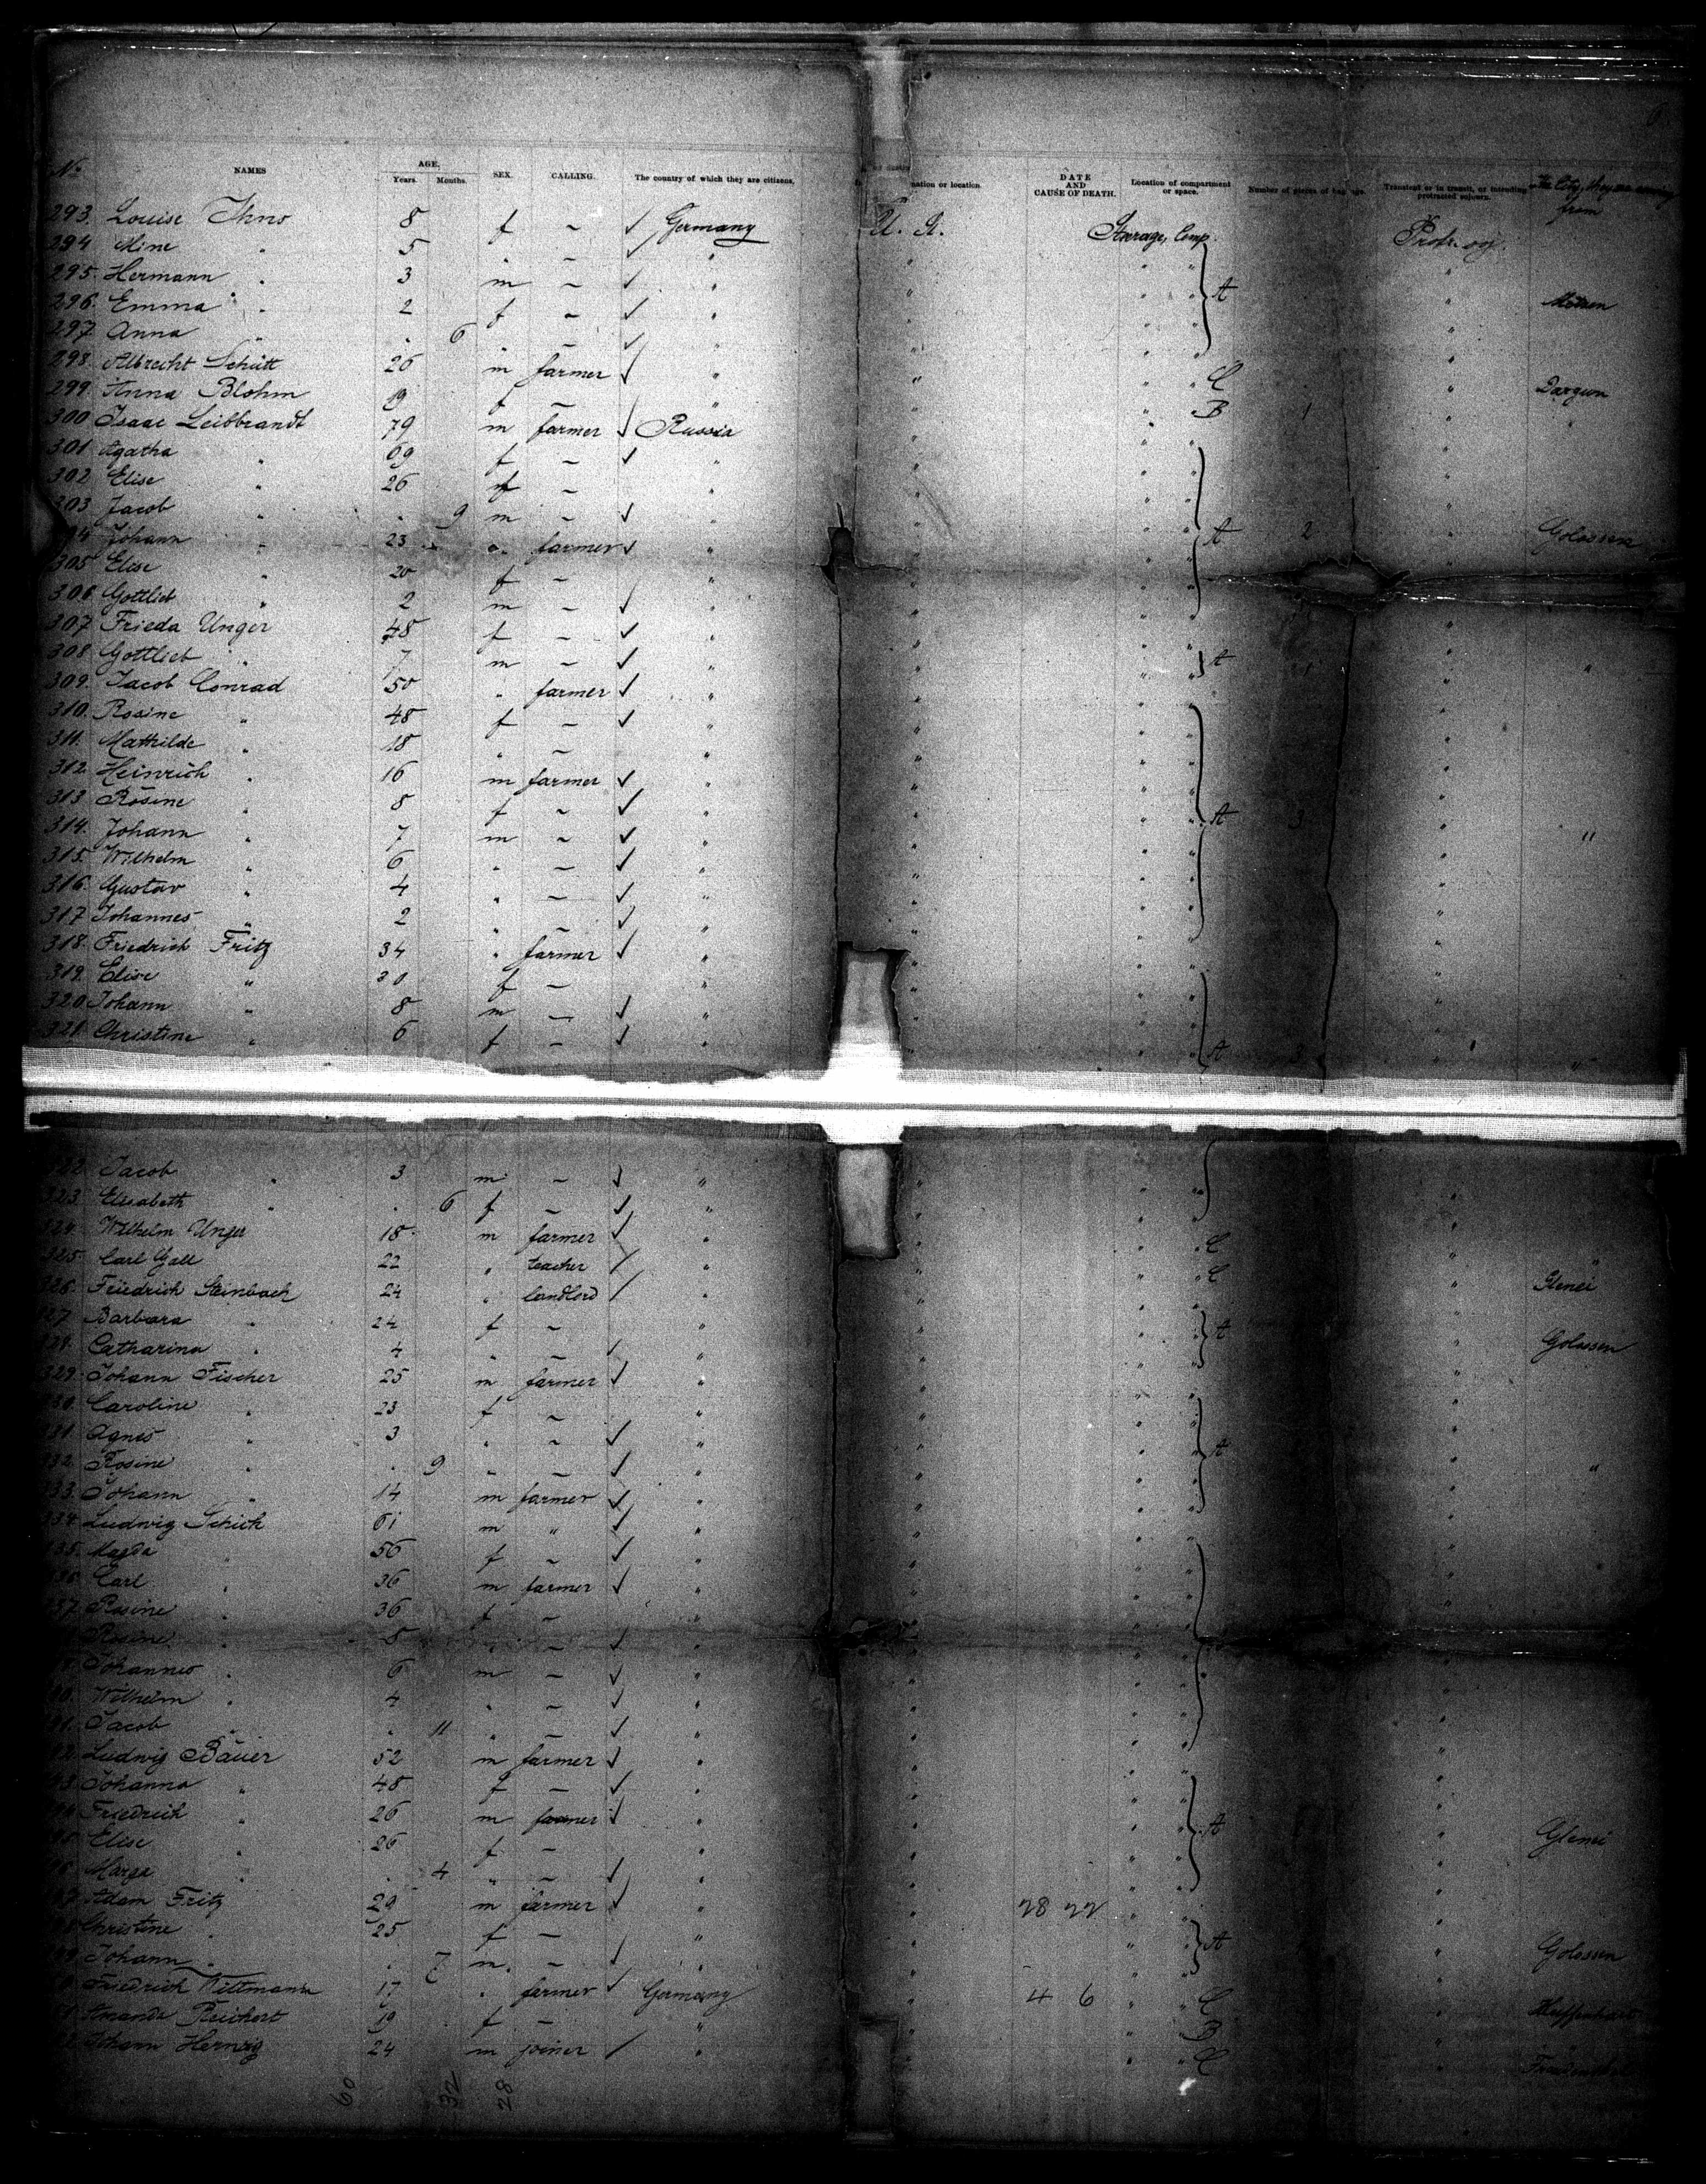 No NAMES AGE. Years. Months. SEX. CALLING. The country of which they are citizens. nation or location. DATE AND CAUSE OF DEATH. Location of compartment or space. Number of pieces of baggage. Transient or in transit, or intending protracted sojourn. the City, they are coming from
293. Louise 8 f – ✓ Germany U. S. Steerage, Comp.
294 Mine " 5 " – ✓ "
295. Hermann " 3 m – ✓ " A
296. Emma " 2 f – ✓ "
297. Anna " " 6 " – ✓ "
298. Albrecht Schütt 26 m farmer ✓ " C
299. Anna Blohm 19 f – " B 1 Dargun
300 Isaac Leibbrandt 79 m farmer ✓ Russia "
301 Agatha " 69 f – ✓ "
302 Elise " 26 f – "
303 Jacob " " 9 m – ✓ "
304 Johann " 23 " farmer ✓ " A 2 Golossen
305 Elise " 20 f – "
306 Gottlieb " 2 m – ✓ "
307 Frieda Unger 48 f – ✓ "
308 Gottlieb " 7 m – ✓ " A 1 "
309. Jacob Conrad 50 " farmer ✓ "
310. Rosine " 48 f – ✓ "
311. Mathilde " 18 " – "
312. Heinrich " 16 m farmer ✓ "
313 Rosine " 8 f – ✓ " A 3
314. Johann " 7 m – ✓ " "
315. Wilhelm " 6 " – ✓ "
316. Gustav " 4 " – ✓ "
317 Johannes " 2 " – ✓ "
318. Friedrich Fritz 34 " farmer ✓ "
319. Elise " 30 f – "
320. Johann " 8 m – ✓ "
321. Christine " 6 f – ✓ " A 3 "
322. Jacob " 3 m – ✓ "
323. Elisabeth " " 6 f – ✓ "
324. Wilhelm Unger 18 m farmer ✓ " C
325. Carl Gall 22 " teacher / " C "
326. Friedrich Steinbach 24 " landlord / " Glenei
327 Barbara " 24 f – " A
328. Catharina " 4 " – ✓ " Golossen
329. Johann Fischer 25 m farmer ✓ "
330. Caroline " 23 f – "
331 Agnes " 3 " – ✓ " A
332. Rosine " " 9 " – ✓ " "
333. Johann " 14 m farmer ✓ "
334 Ludwig Schick 61 m " ✓ "
335. Magda " 56 f – ✓ "
336 Carl " 36 m farmer ✓ "
337. Rosine " 36 f – "
Rosine " 8 " – ✓ "
Johannes " 6 m – ✓ "
Wilhelm " 4 " – ✓ "
Jacob " " 11 " – ✓ "
Ludwig Bauer 52 m farmer ✓ "
Johanna " 48 f – ✓ "
Friedrich " 26 m farmer ✓ " A
Elise " 26 f – " Glenei
Marga " " 4 " – ✓ "
Adam Fritz 29 m farmer ✓ " 28 22
Christine " 25 f – " A
Johann " " 7 m. – ✓ " Golossen
Friedrich Wittmann 17 " farmer ✓ Germany 4 6 C
Amanda Reichert 19 f – " B
Johann Herwig 24 m joiner / C
60 32 28